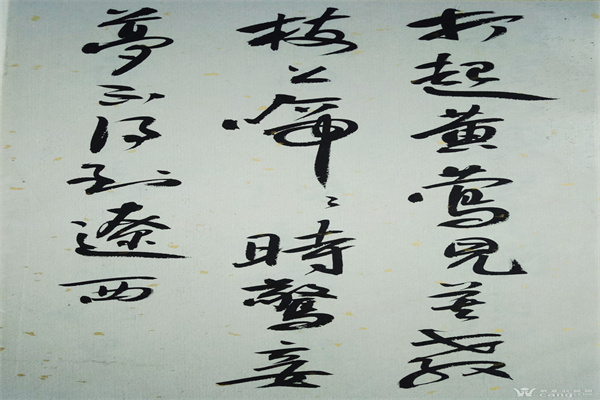 打起黄鶯兒莫教
枝上啼〻時驚妾
夢不得到遼西